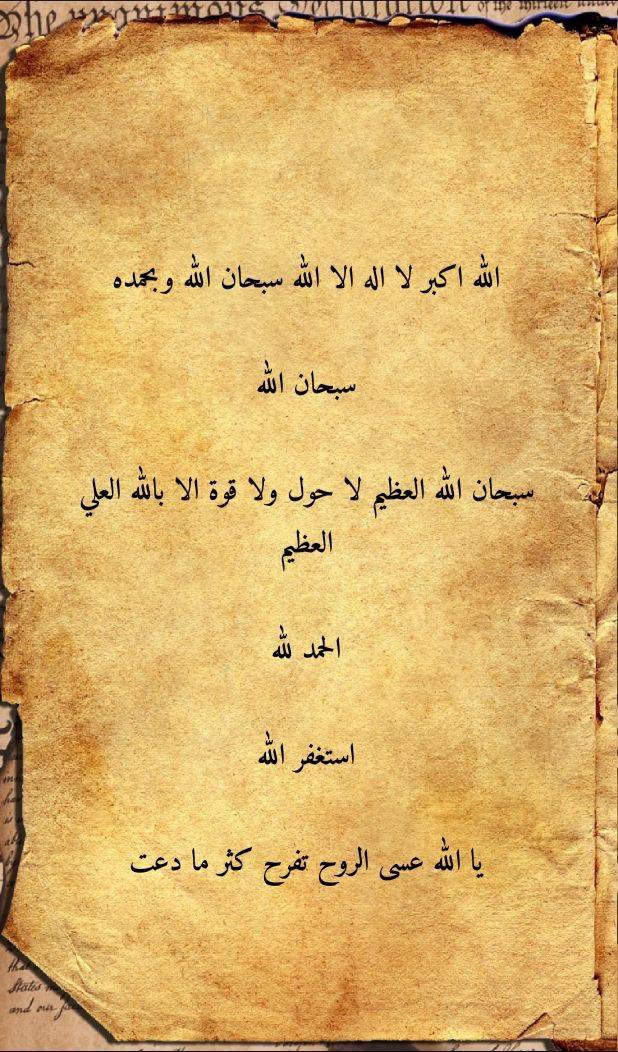 The unanimous Declaration of the thirteen united
الله اكبر لا اله الا الله سبحان الله وبحمده
سبحان الله
سبحان الله العظيم لا حول ولا قوة الا بالله العلي
العظيم
الحمد لله
استغفر الله
يا الله عسى الروح تفرح كثر ما دعت
that
States
and our